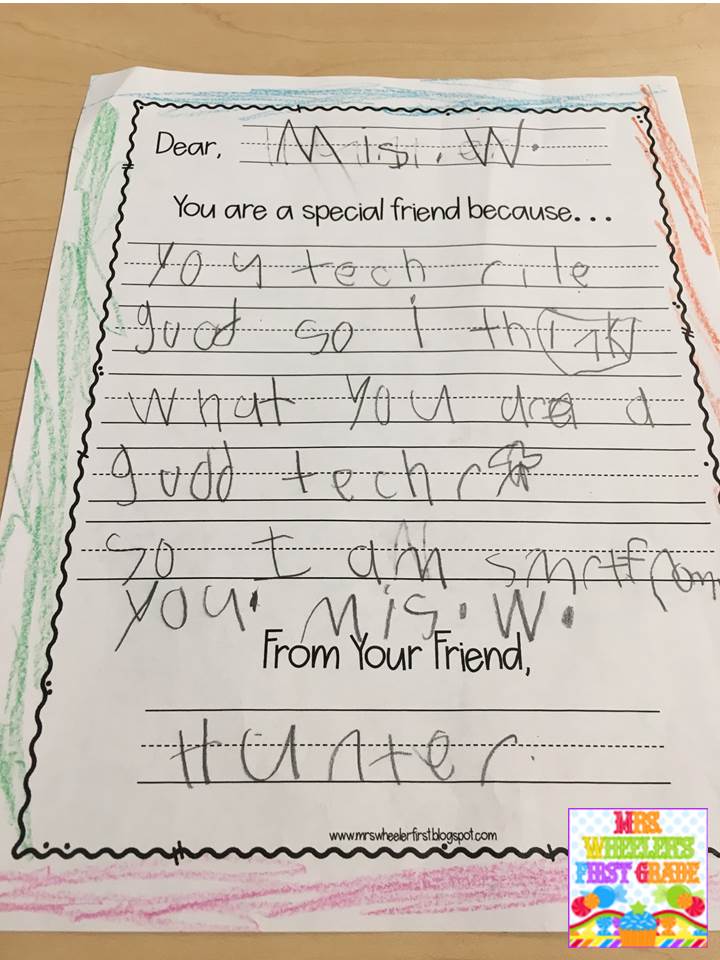 Dear, Mis. W.
You are a special friend because...
You tech rite
gudd so i think
what you are a
gudd techr
so I am smrt from
you. Mis. W.
From Your Friend,
Hunter.
www.mrswheelerfirst.blogspot.com
MRS.
WHEELER'S
FIRST GRADE